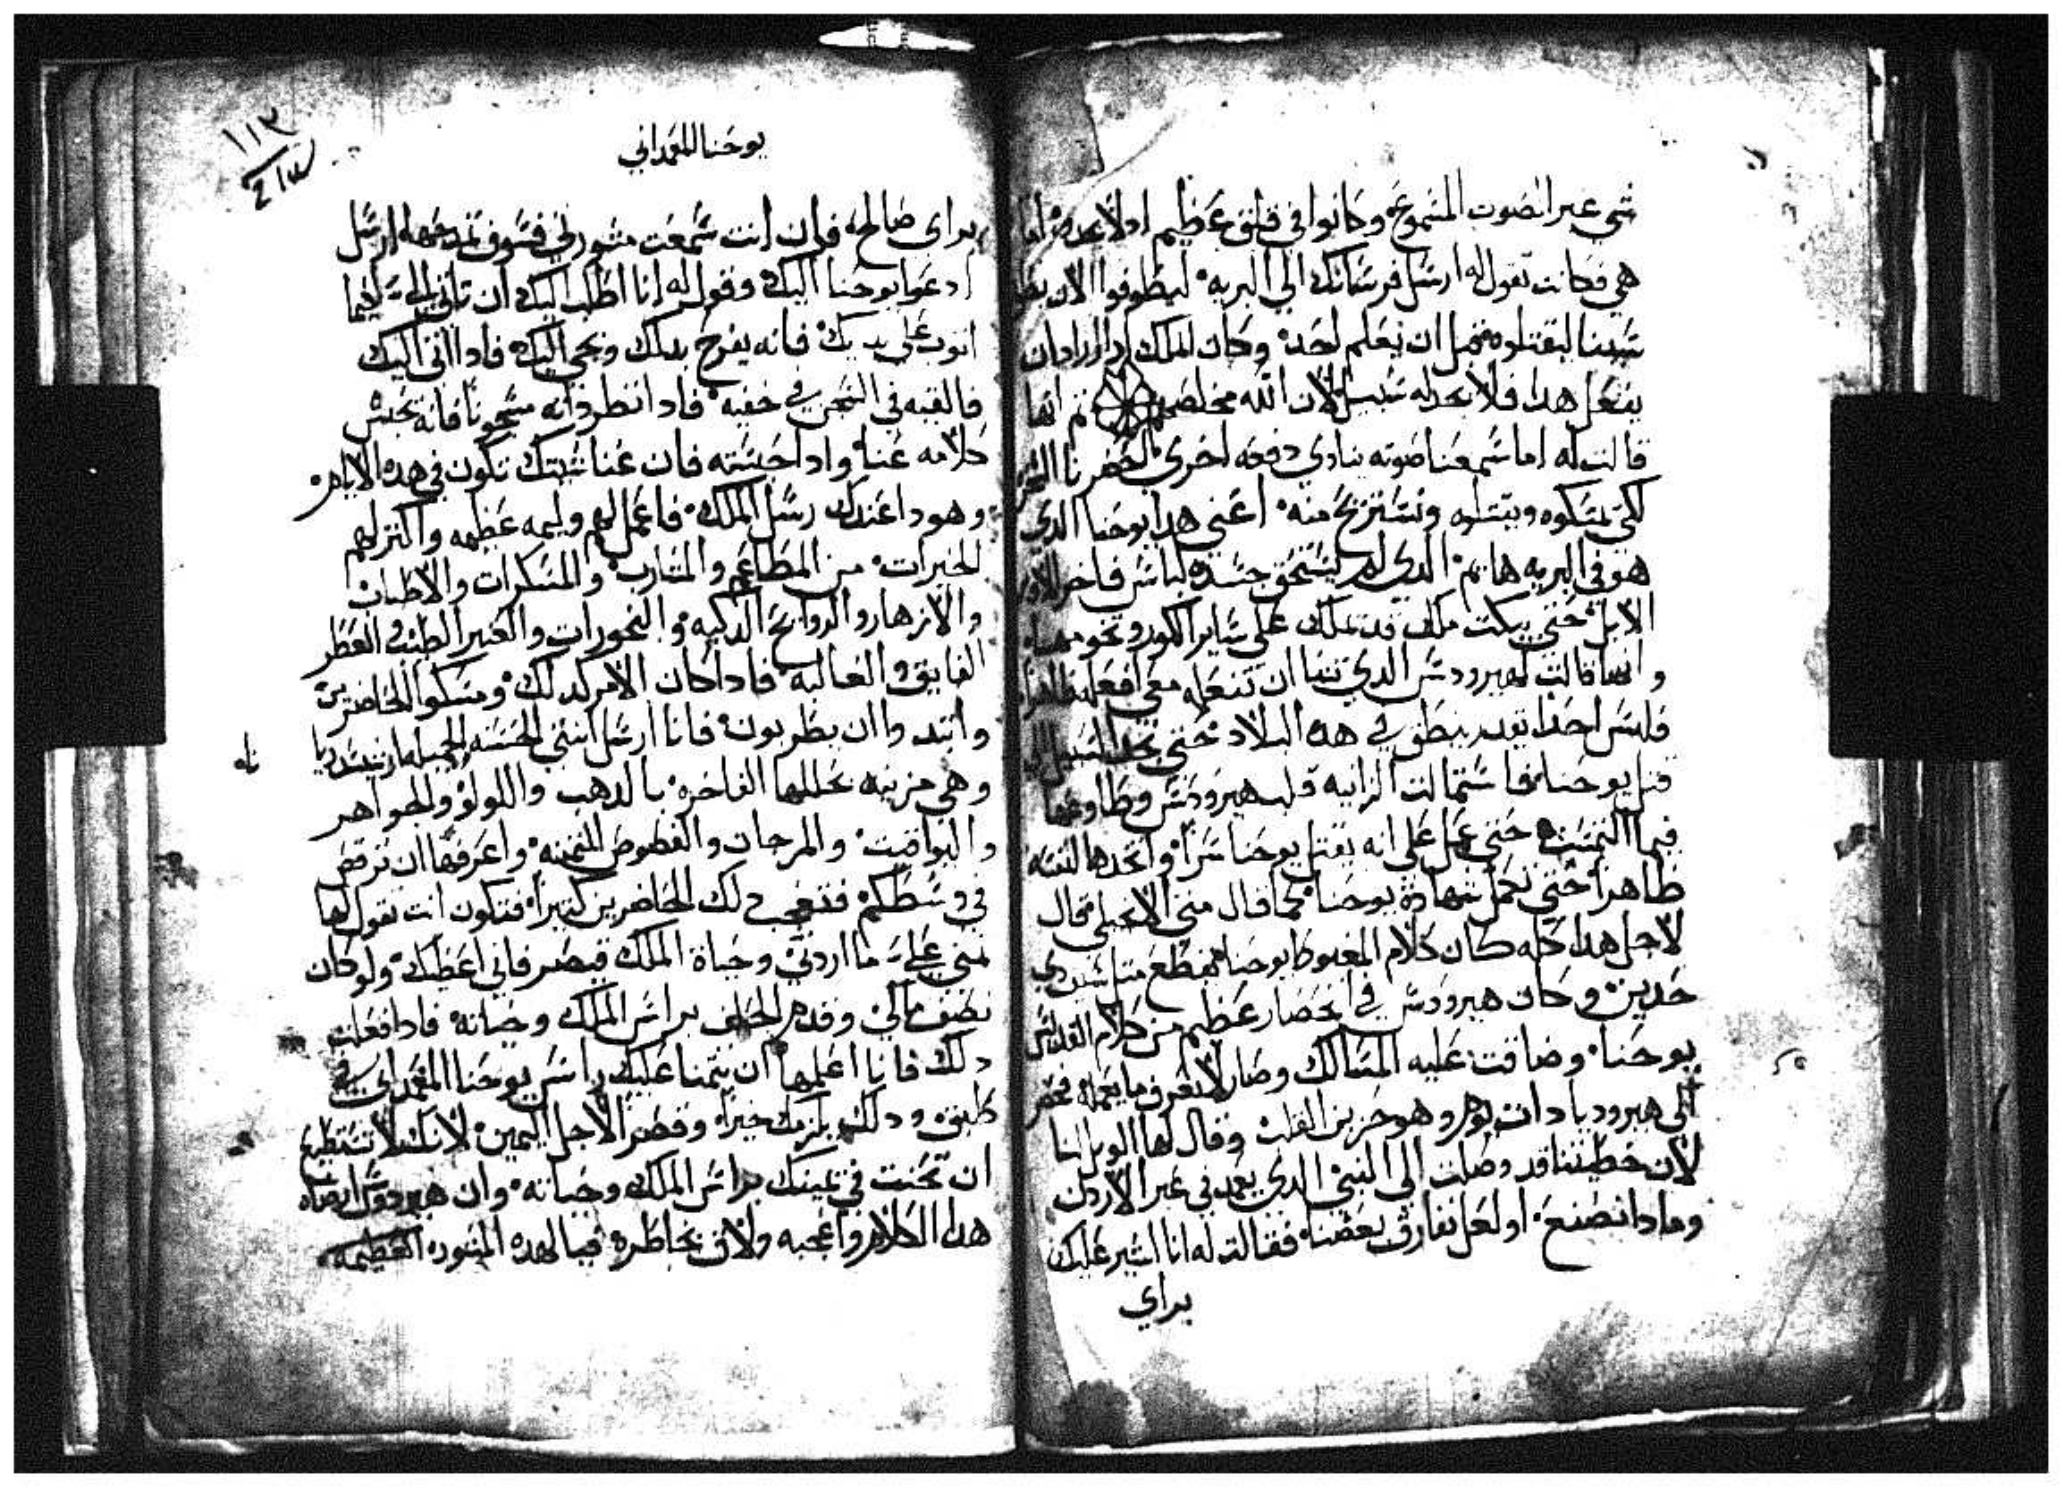 شي غير الصوت المسموع وكانوا في قلق عظيم اولا
هي فكانت تقول له ارسل فرسانك الي البريه ليطوفوا
ليقتلوه من قبل ان يعلم احد وكان الملك
يفعل هدا فلا يجد له سبيل لان الله مخلصه ثم انها
قالت له اما سمعنا صوته ينادي دفعه اخري
لكي يمسكوه ويقتلوه ونستريح منه اعني هدا يوحنا الدي
هو في البريه هايم الدي لم يستحق جسده لباس فاخر
الابل حتي يبكت ملك قد تملك علي ساير الكور
وانها قالت لهيرودس الدي تشا ان تفعله معي افعله ظاهرا
فليس احدا يقدر ينطق في هده البلاد حتي نجد السبيل الي
قتل يوحنا فاستمالت الزانيه قلب هيرودس وطاوعها
فيما التمست حتي عمل علي انه يقتل يوحنا سرا
ظاهرا حتي تكمل شهادة يوحنا كما قال متي الانجيلي
لاجل هدا كله كان كلام المغبوط يوحنا يقطع
حدين وكان هيرودس في انحصار عظيم من كلام القديس
يوحنا وضاقت عليه المسالك وصار لا يعرف ما يعمله فحضر
الي هيروديا دات يوم وهو حزين القلب وقال لها الويل لنا
لان خطيتنا قد وصلت الي النبي الدي يعمد في عبر الاردن
ومادا نصنع او لعل نفارق بعضنا فقالت له انا اشير عليك
براي
يوحنا المعمداني
١١٣
براي صالحه فان انت سمعت مشورتي فسوف ارسل
ادعوا يوحنا اليك وقول له انا اطلب اليك ان تاتي الي لكيما
اتوب علي يديك فانه يفرح بدلك ويجي اليك فادا اتي اليك
فالقيه في السجن في خفيه فادا نظر دانه مسجونا فانه يحبس
كلامه عنا وادا حبسته فان تكون في هده الايام
وهودا عندك رسل الملك فاعمل لهم وليمه عظيمه واكتر لهم
الخيرات من المطاعم والمشارب والمسكرات والاطياب
والازهار والروايح الدكيه والبخورات والعنبر الطيب والعطر
الفايق والغاليه فادا كان الامر كدلك وسكروا الحاضرين
وابتدوا ان يطربون فانا ارسل ابنتي الحسنه الجميله
وهي مزينه بحللها الفاخره بالدهب واللولو والجواهر
واليواقيت والمرجان والفصوص المتمنه واعرفها ان ترقص
في وسطكم فتعجب دلك الحاضرين كتيرا فتكون انت تقول لها
تمني علي ما اردتي وحياة الملك قيصر فاني اعطيك ولو كان
نصف مالي وقدم الحلف براس الملك وحياته فادا فعلت
دلك فانا اعلمها ان تتمنا عليك راس يوحنا المعمداني في
طبق ودلك يلزمك خيرا وقصرا لاجل اليمين لانك لا تستطيع
ان تحنت في يمينك براس الملك وحياته وان هيرودس ارضاه
هدا الكلام واعجبه ولاق بخاطره فيا لهده المشوره العظيمه